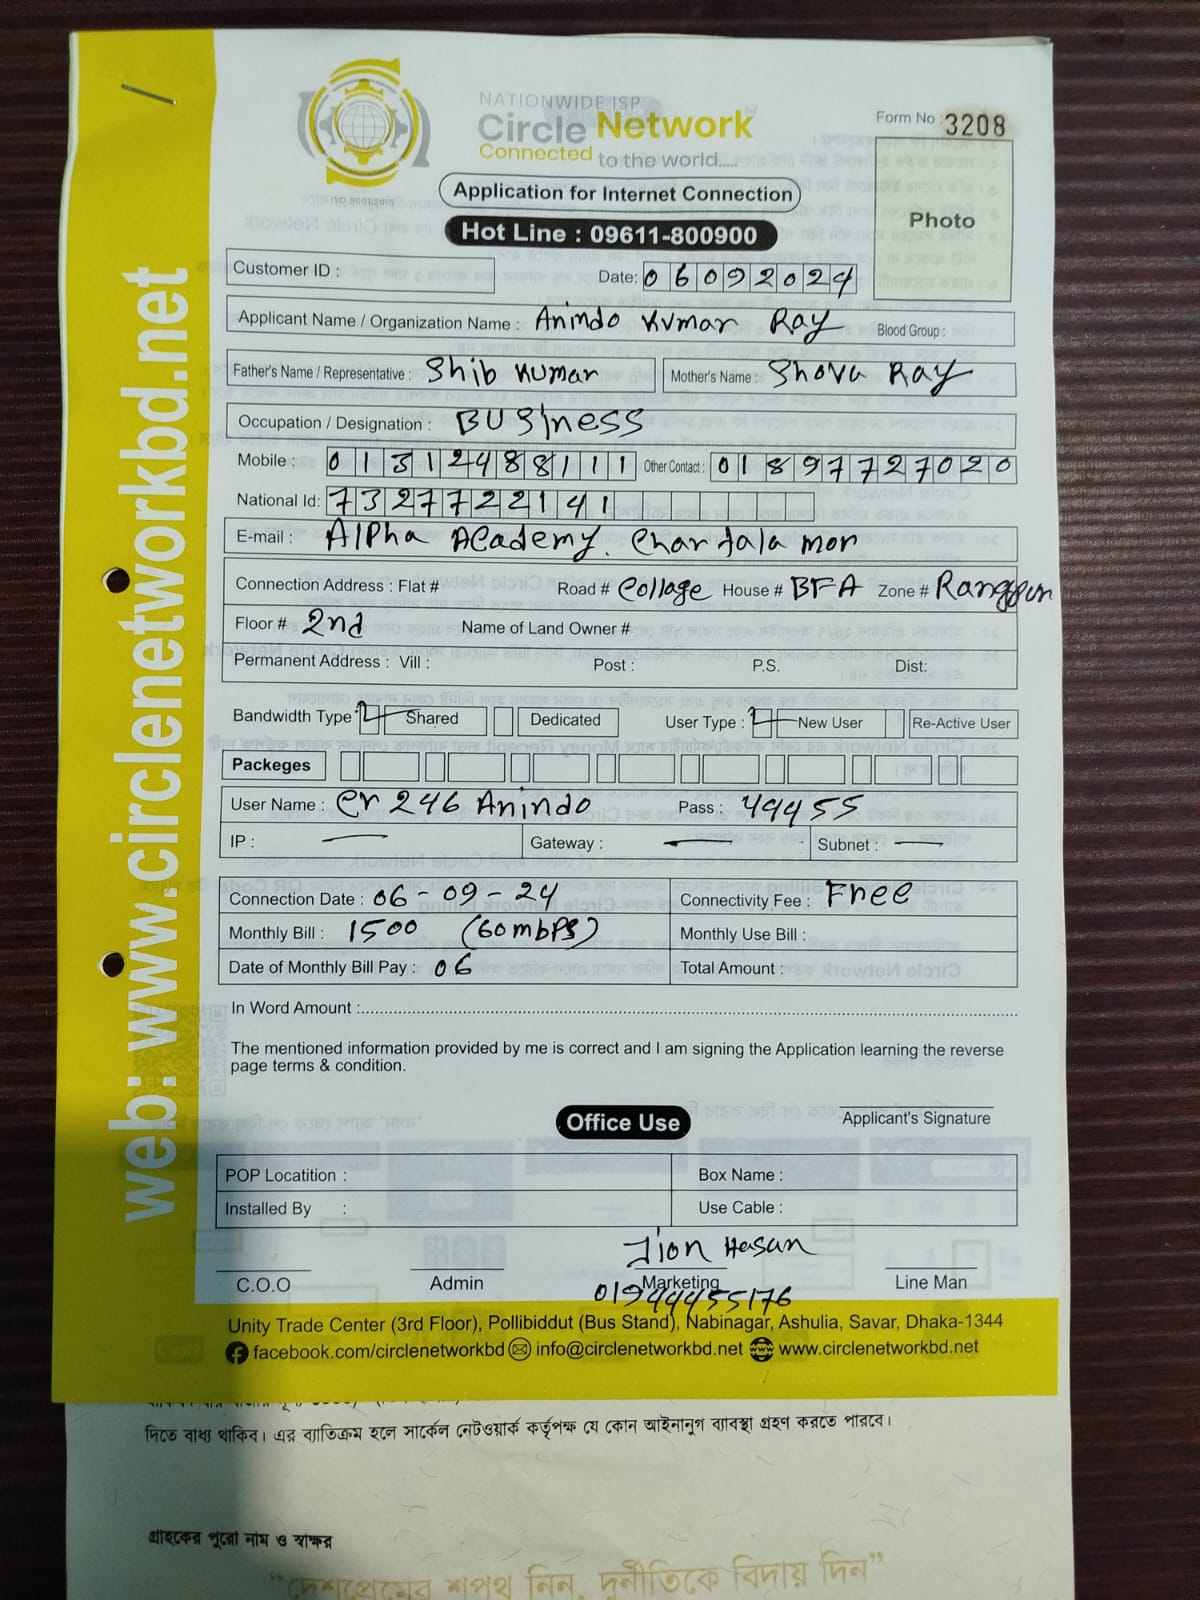 NATIONWIDE ISP
Circle Network
Connected to the world.....
ISO 9001:2015
Form No : 3208
Application for Internet Connection
Photo
Hot Line : 09611-800900
Customer ID :
Date: 06092024
Applicant Name / Organization Name : Anindo Kumar Ray Blood Group :
Father's Name / Representative : Shib Kumar Mother's Name : Shova Ray
Occupation / Designation : BUSiness
Mobile : 01312488111 Other Contact : 01897727020
National Id: 7327722141
E-mail : Alpha Academy. Chartala mor
Connection Address : Flat # Road # Collage House # BFA Zone # Rangpur
Floor # 2nd Name of Land Owner #
Permanent Address : Vill : Post : P.S. Dist:
Bandwidth Type : Shared Dedicated User Type : New User Re-Active User
Packeges
User Name : Cr 246 Anindo Pass : 44455
IP : — Gateway : — Subnet : —
Connection Date : 06-09-24 Connectivity Fee : Free
Monthly Bill : 1500 (60mbps) Monthly Use Bill :
Date of Monthly Bill Pay : 06 Total Amount :
In Word Amount :
The mentioned information provided by me is correct and I am signing the Application learning the reverse
page terms & condition.
Applicant's Signature
Office Use
POP Locatition : Box Name :
Installed By : Use Cable :
Jion Hasan
C.O.O Admin Marketing Line Man
01944455176
Unity Trade Center (3rd Floor), Pollibiddut (Bus Stand), Nabinagar, Ashulia, Savar, Dhaka-1344
facebook.com/circlenetworkbd info@circlenetworkbd.net www.circlenetworkbd.net
web: www.circlenetworkbd.net
দিতে বাধ্য থাকিব। এর ব্যতিক্রম হলে সার্কেল নেটওয়ার্ক কর্তৃপক্ষ যে কোন আইনানুগ ব্যাবস্থা গ্রহণ করতে পারবে।
গ্রাহকের পুরো নাম ও স্বাক্ষর
“দেশপ্রেমের শপথ নিন, দুর্নীতিকে বিদায় দিন”